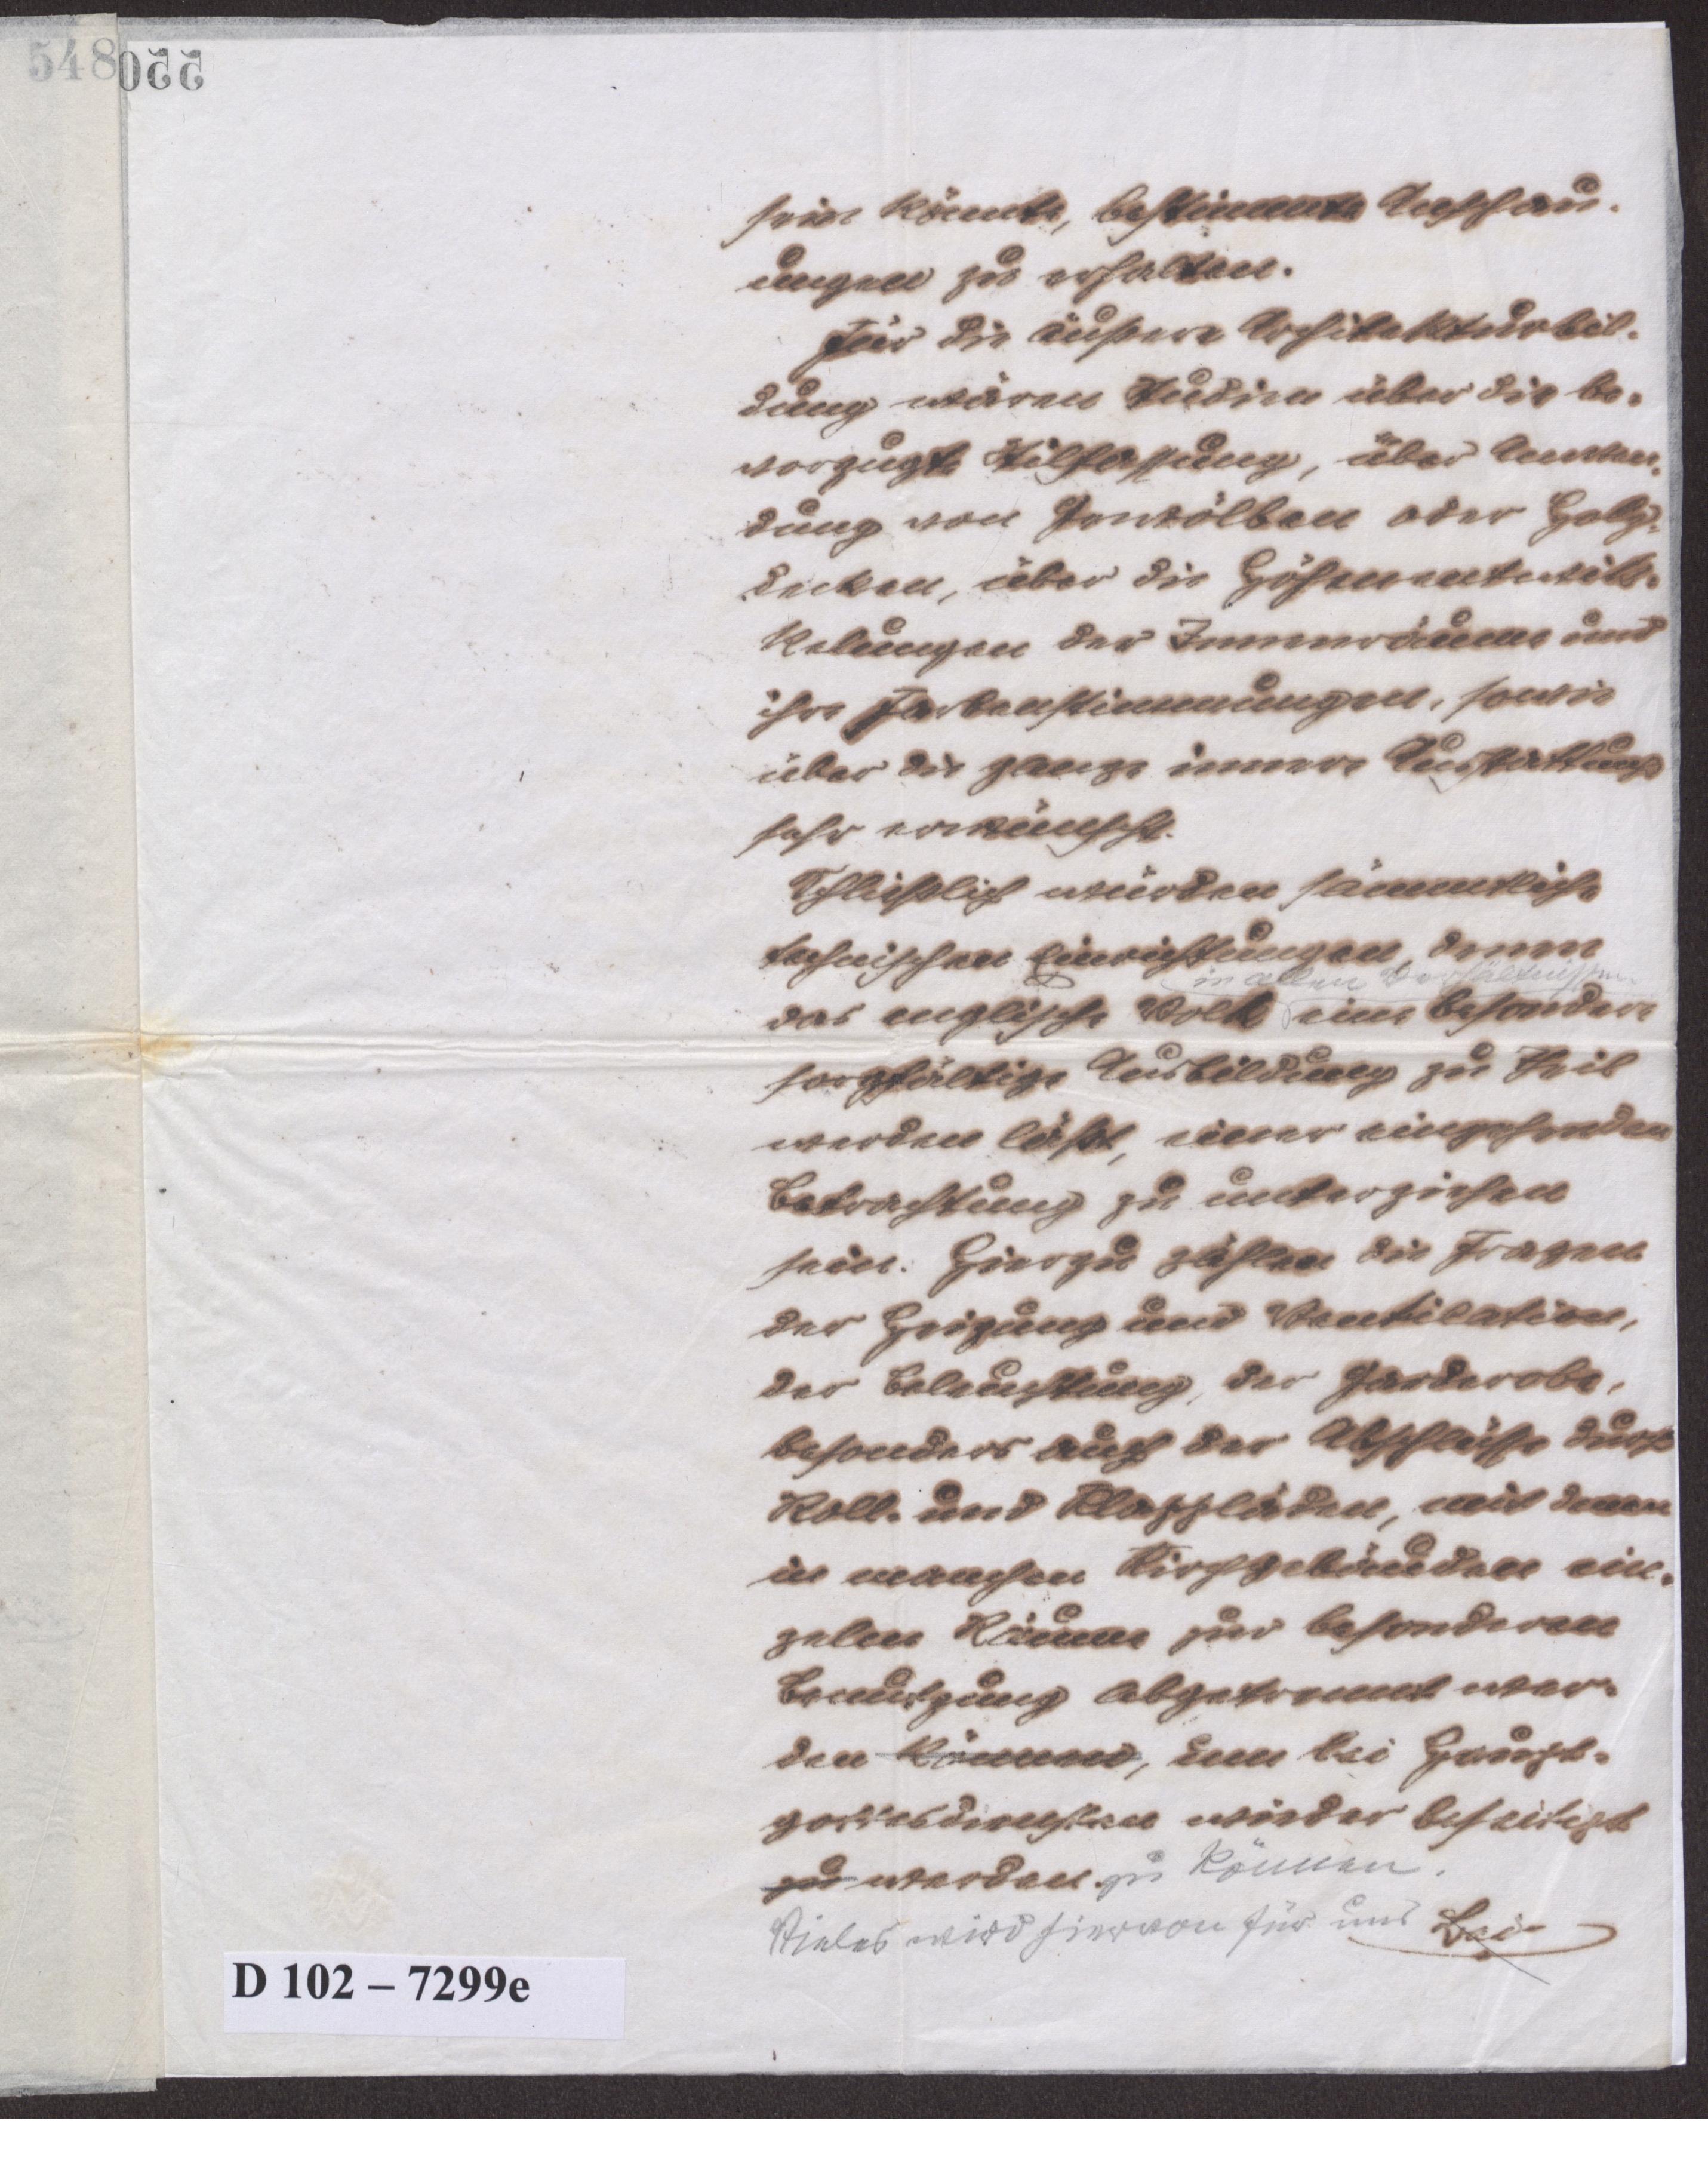 548
550
sein könnte, bestimmte Anschau-
ungen zu erhalten.
Für die äußere Architekturbil-
dung wären Studien über die be-
vorzugte Stilfassung, über Anwen-
dung von Gewölben oder Holz-
decken, über die Höhenentwik-
kelungen der Innenräume und
ihre Farbenstimmungen, sowie
über die ganze innere Ausstattung
sehr erwünscht.
Schließlich würden sämmtliche
technischen Einrichtungen, denen
in allen Verhältnissen
das englische Volk eine besondere
sorgfältige Ausbildung zu Theil
werden läßt, einer eingehenden
Betrachtung zu unterziehen
sein. Hierzu zählen die Fragen
der Heizung und Ventilation,
der Beleuchtung, der Garderobe,
besonders auch der Abschlüsse durch
Roll- und Klappläden, mit denen
in manchen Kirchgebäuden ein-
zelne Räume zur besonderen
Benutzung abgetrennt wer-
den können, um bei Haupt-
gottesdiensten wieder beseitigt
zu werden zu können.
Vieles wird hiervon für uns Bei-
D 102 – 7299e